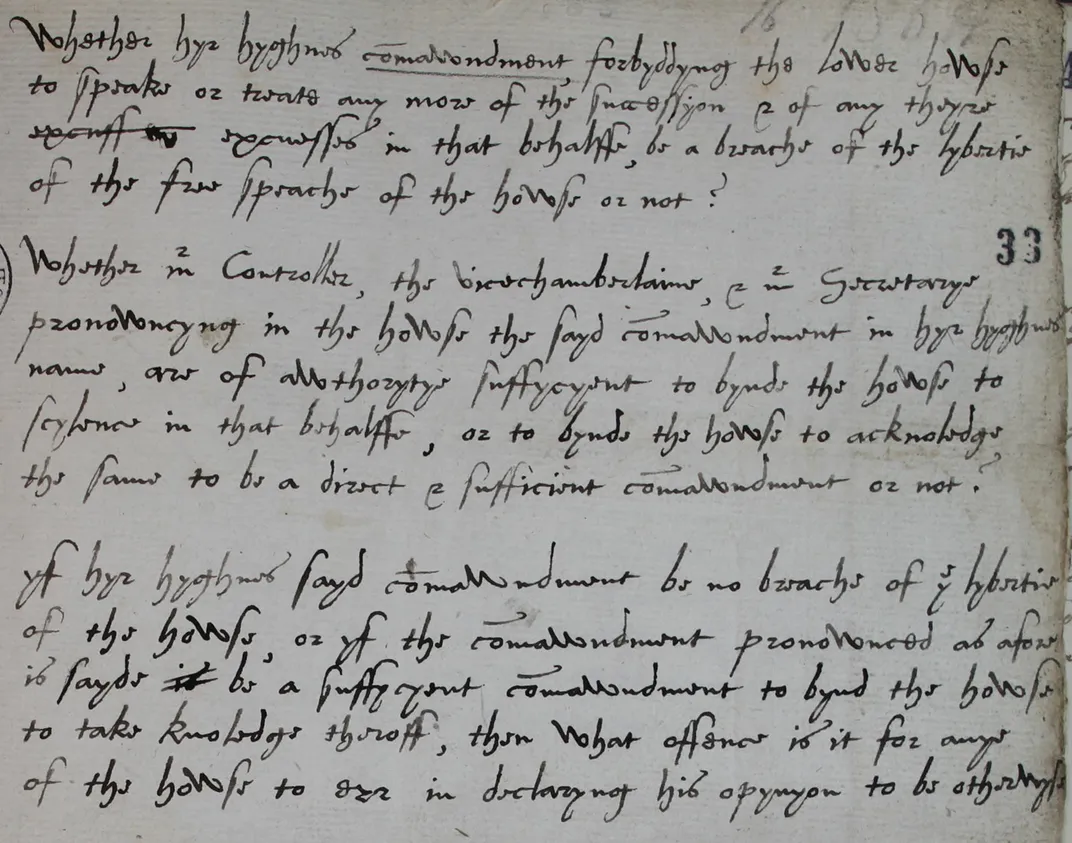 Whether hyr hyghnes cōmawndment, forbyddyng the lower howse
to speake or treate any more of the successyon & of any theyre
excuses in that behalffe, be a breache of the lybertie
of the free speache of the howse or not?
33
Whether mr Controller, the vicechamberlaine, & mr Secretarye
pronowncyng in the howse the sayd cōmawndment in hyr hyghnes
name, are of awthorytye suffycyent to bynde the howse to
scylence in that behalffe, or to bynde the howse to acknoledge
the same to be a direct & sufficient cōmawndment or not?
yf hyr hyghnes sayd cōmawndment be no breache of ye lybertie
of the howse, or yf the cōmawndment pronownced as afore
is sayde it be a suffycyent cōmawndment to bynd the howse
to take knoledge theroff, then what offence is it for anye
of the howse to err in declaryng his opynyon to be otherwyse